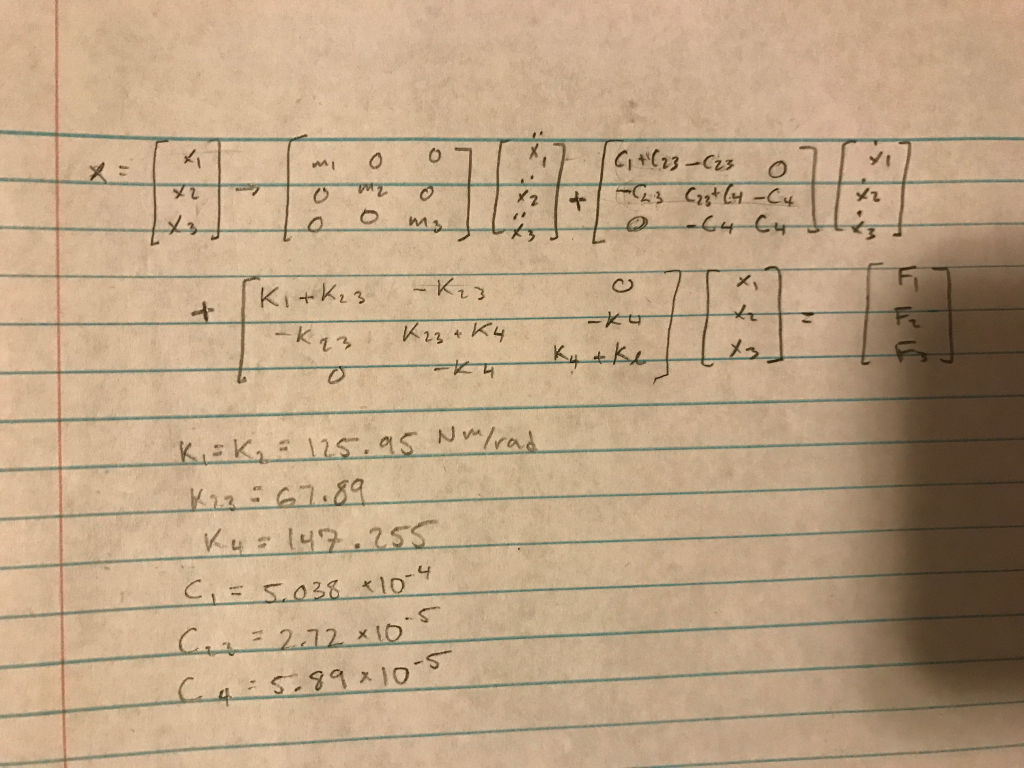 x = [x₁ x₂ x₃] → [m₁ 0 0; 0 m₂ 0; 0 0 m₃] [ẍ₁ ẍ₂ ẍ₃] + [C₁+C₂₃ -C₂₃ 0; -C₂₃ C₂₃+C₄ -C₄; 0 -C₄ C₄] [ẋ₁ ẋ₂ ẋ₃]
+ [K₁+K₂₃ -K₂₃ 0; -K₂₃ K₂₃+K₄ -K₄; 0 -K₄ K₄+Kₗ] [x₁ x₂ x₃] = [F₁ F₂ F₃]
K₁=K₂ = 125.95 Nm/rad
K₂₃ = 67.89
K₄ = 147.255
C₁ = 5.038 ×10⁻⁴
C₂₃ = 2.72 ×10⁻⁵
C₄ = 5.89 ×10⁻⁵